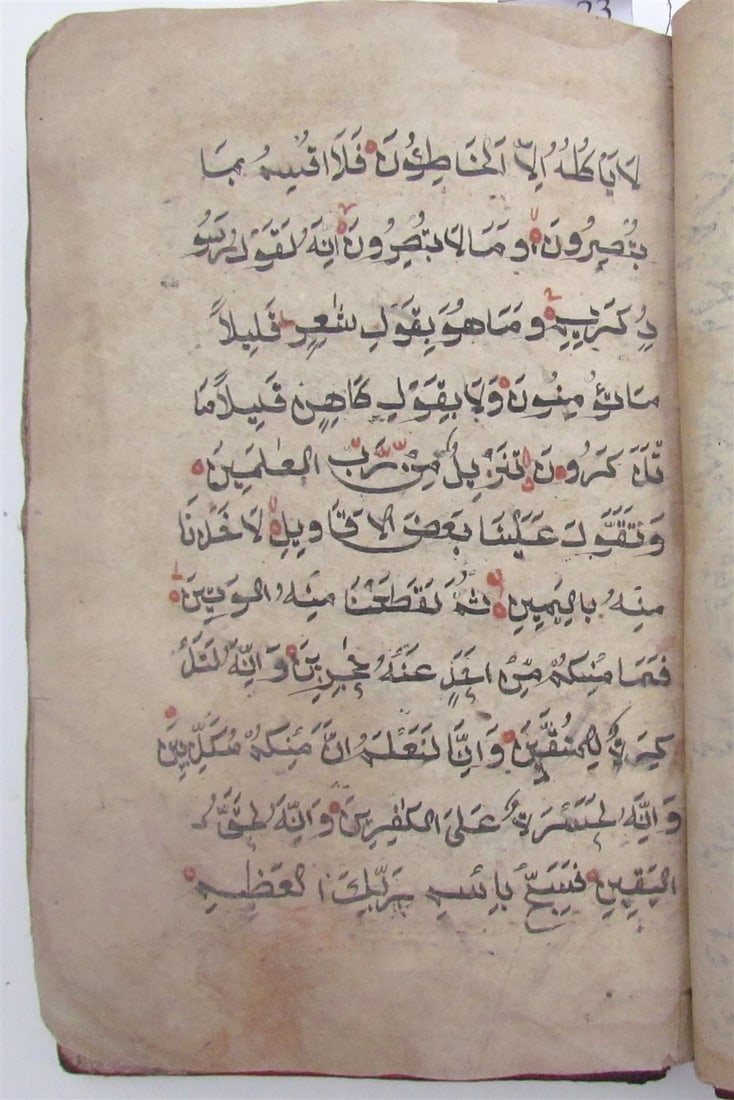 23
لَا يَاكُلُهُ اِلَّا الْخَاطِئُونَ فَلَا اُقْسِمُ بِمَا
تُبْصِرُونَ وَمَا لَا تُبْصِرُونَ اِنَّهُ لَقَوْلُ رَسُو
لٍ كَرِيمٍ وَمَا هُوَ بِقَوْلِ شَاعِرٍ قَلِيلًا
مَا تُؤْمِنُونَ وَلَا بِقَوْلِ كَاهِنٍ قَلِيلًا مَا
تَذَكَّرُونَ تَنْزِيلٌ مِنْ رَّبِّ الْعٰلَمِينَ
وَلَوْ تَقَوَّلَ عَلَيْنَا بَعْضَ الْاَقَاوِيلِ لَاَخَذْنَا
مِنْهُ بِالْيَمِينِ ثُمَّ لَقَطَعْنَا مِنْهُ الْوَتِينَ
فَمَا مِنْكُمْ مِنْ اَحَدٍ عَنْهُ حٰجِزِينَ وَاِنَّهُ لَتَذْ
كِرَةٌ لِلْمُتَّقِينَ وَاِنَّا لَنَعْلَمُ اَنَّ مِنْكُمْ مُكَذِّبِينَ
وَاِنَّهُ لَحَسْرَةٌ عَلَى الْكٰفِرِينَ وَاِنَّهُ لَحَقُّ
الْيَقِينِ فَسَبِّحْ بِاسْمِ رَبِّكَ الْعَظِيمِ